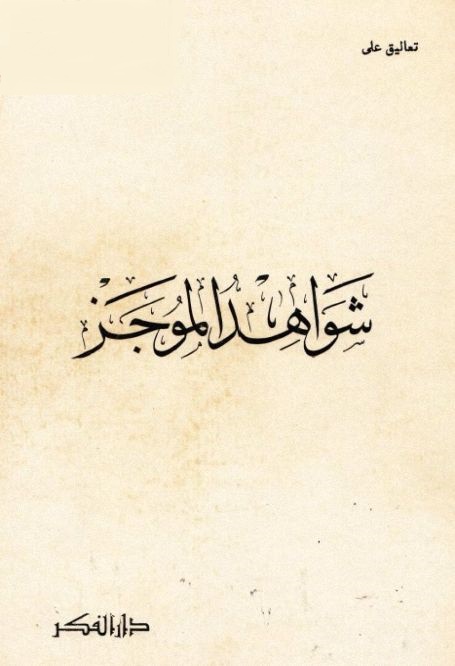 تعاليق على
شَوَاهْدُ المُوجَزْ
دار الفكر